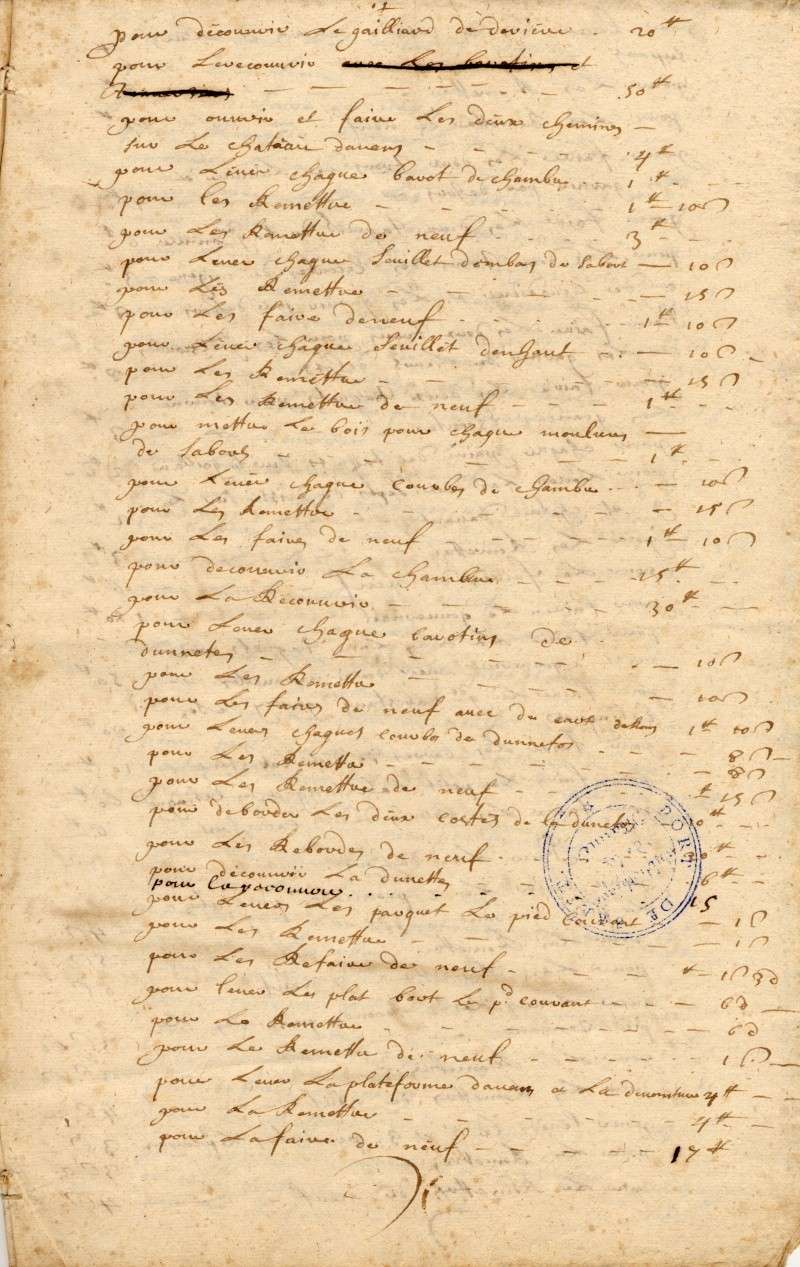 pour découvrir Le gailliard de deriere . 20ᵗᵗ
pour Lerecouvrir avec Les barotins et
50ᵗᵗ
pour ouvrir et faire Les deux chemins
sur Le chateau davens 4ᵗᵗ
pour Lever chaque barot de chambre 1ᵗᵗ
pour les Remettre 1ᵗᵗ 10ſ
pour Les Remettre de neuf 3ᵗᵗ
pour Lever chaque seuillet dembas de sabort 10ſ
pour Les Remettre 15ſ
pour Les faire deneuf 1ᵗᵗ 10ſ
pour Lever chaque seuillet denhaut 10ſ
pour Les Remettre 15ſ
pour Les Remettre de neuf 1ᵗᵗ
pour mettre Le bois pour chaque moulures
de saborts 1ᵗᵗ
pour Lever chaque courbes de chambre 10ſ
pour Les Remettre 15ſ
pour Les faires de neuf 1ᵗᵗ 10ſ
pour decouvrir La chambre 25ᵗᵗ
pour La Recouvrir 30ᵗᵗ
pour Lever chaque barotins de
dunnetes 10ſ
pour Les Remettre 10ſ
pour Les faires de neuf avec de 1ᵗᵗ 10ſ
pour Lever chaques courbes de dunnetes 8ſ
pour Les Remettre 8ſ
pour Les Remettre de neuf 15ſ
pour deborder Les deux costes de la dunetes
pour Les Rebordes de neuf
pour découvrir La dunettes 6ᵗᵗ
pour La recouvrir 15
pour Lever Les parquet Le pied courant 1ſ
pour Les Remettre 1ſ
pour Les Refaire de neuf 1ſ 3d
pour lever Les plat bort Le pᵈ courant 6d
pour Le Remettre 6d
pour Le Remettre de neuf 1ſ
pour Lever La plateforme davans a La 4ᵗᵗ
pour La Remettre 4ᵗᵗ
pour La faire de neuf 17ᵗᵗ
PORT DE